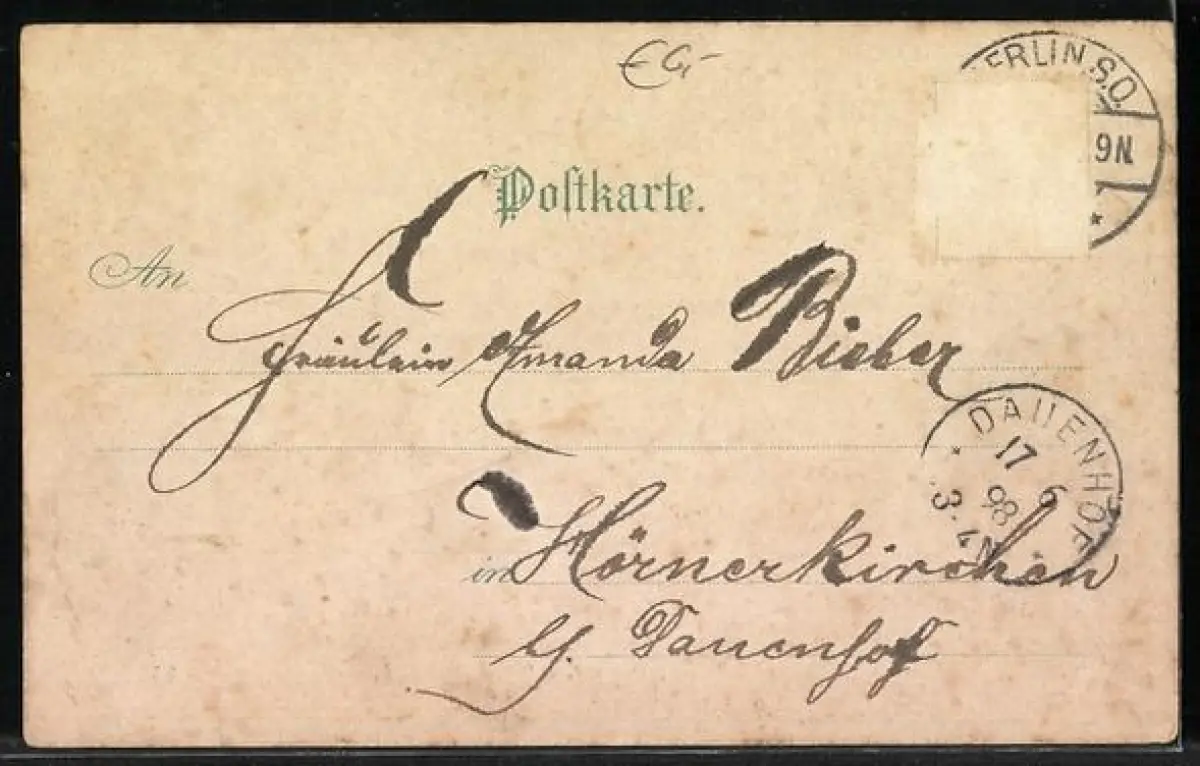 BERLIN S.O.
9N
*
Postkarte.
An
Fräulein Amanda Bieber
DAUENHOF
17 6
98
3-4N
in Hörnerkirchen
Dauenhof